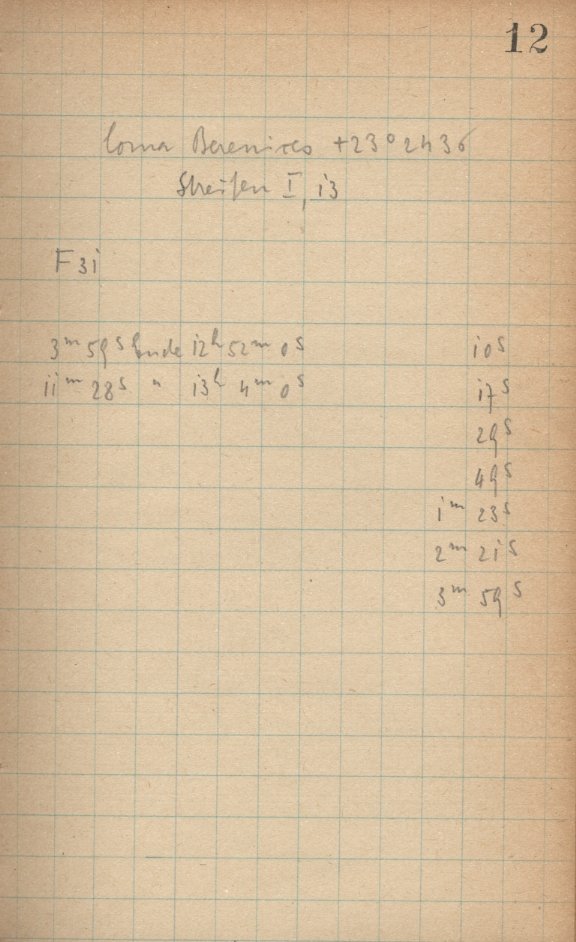 12
Coma Berenices +23°2436
Streifen I, 13
F 31
3ᵐ 59ˢ Ende 12ʰ 52ᵐ 0ˢ 10ˢ
11ᵐ 28ˢ " 13ʰ 4ᵐ 0ˢ 17ˢ
29ˢ
49ˢ
1ᵐ 23ˢ
2ᵐ 21ˢ
3ᵐ 59ˢ